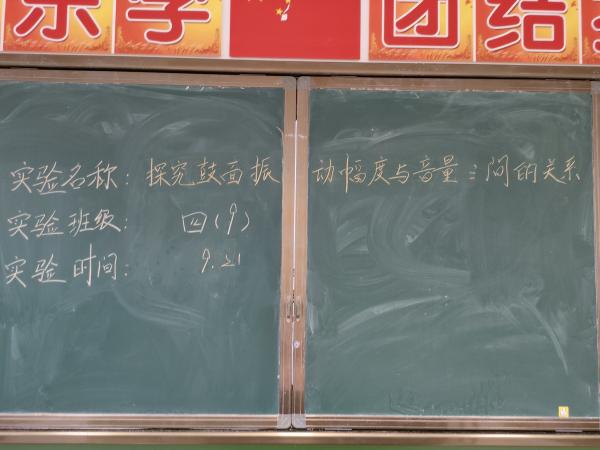 乐学
团结
实验名称：探究鼓面振动幅度与音量之间的关系
实验班级：四（9）
实验时间：9.21